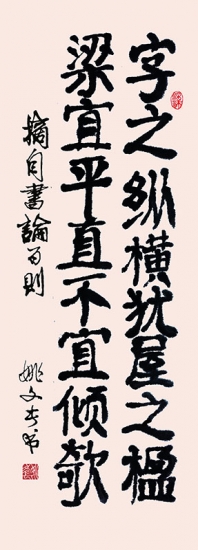 字之纵横犹屋之楹
梁宜平直不宜倾欹
摘自书論百則
姚文奎书